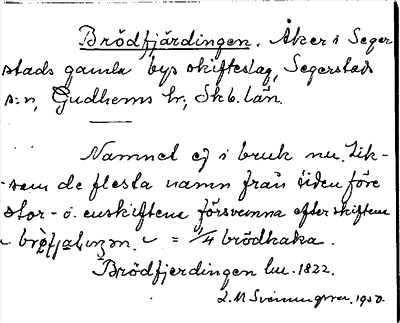 Brödfjärdingen. Åker i Seger
stads gamla bys skifteslag, Segerstads
s:n, Gudhems hr, Skb. län.
Namnet ej i bruk nu. Lik-
-som de flesta namn från tiden före
stor- o. enskiftena försvunna efter skiftena
= 1/4 brödkaka.
Brödfjerdingen 1822.
L. M. Svennungsson. 1930.